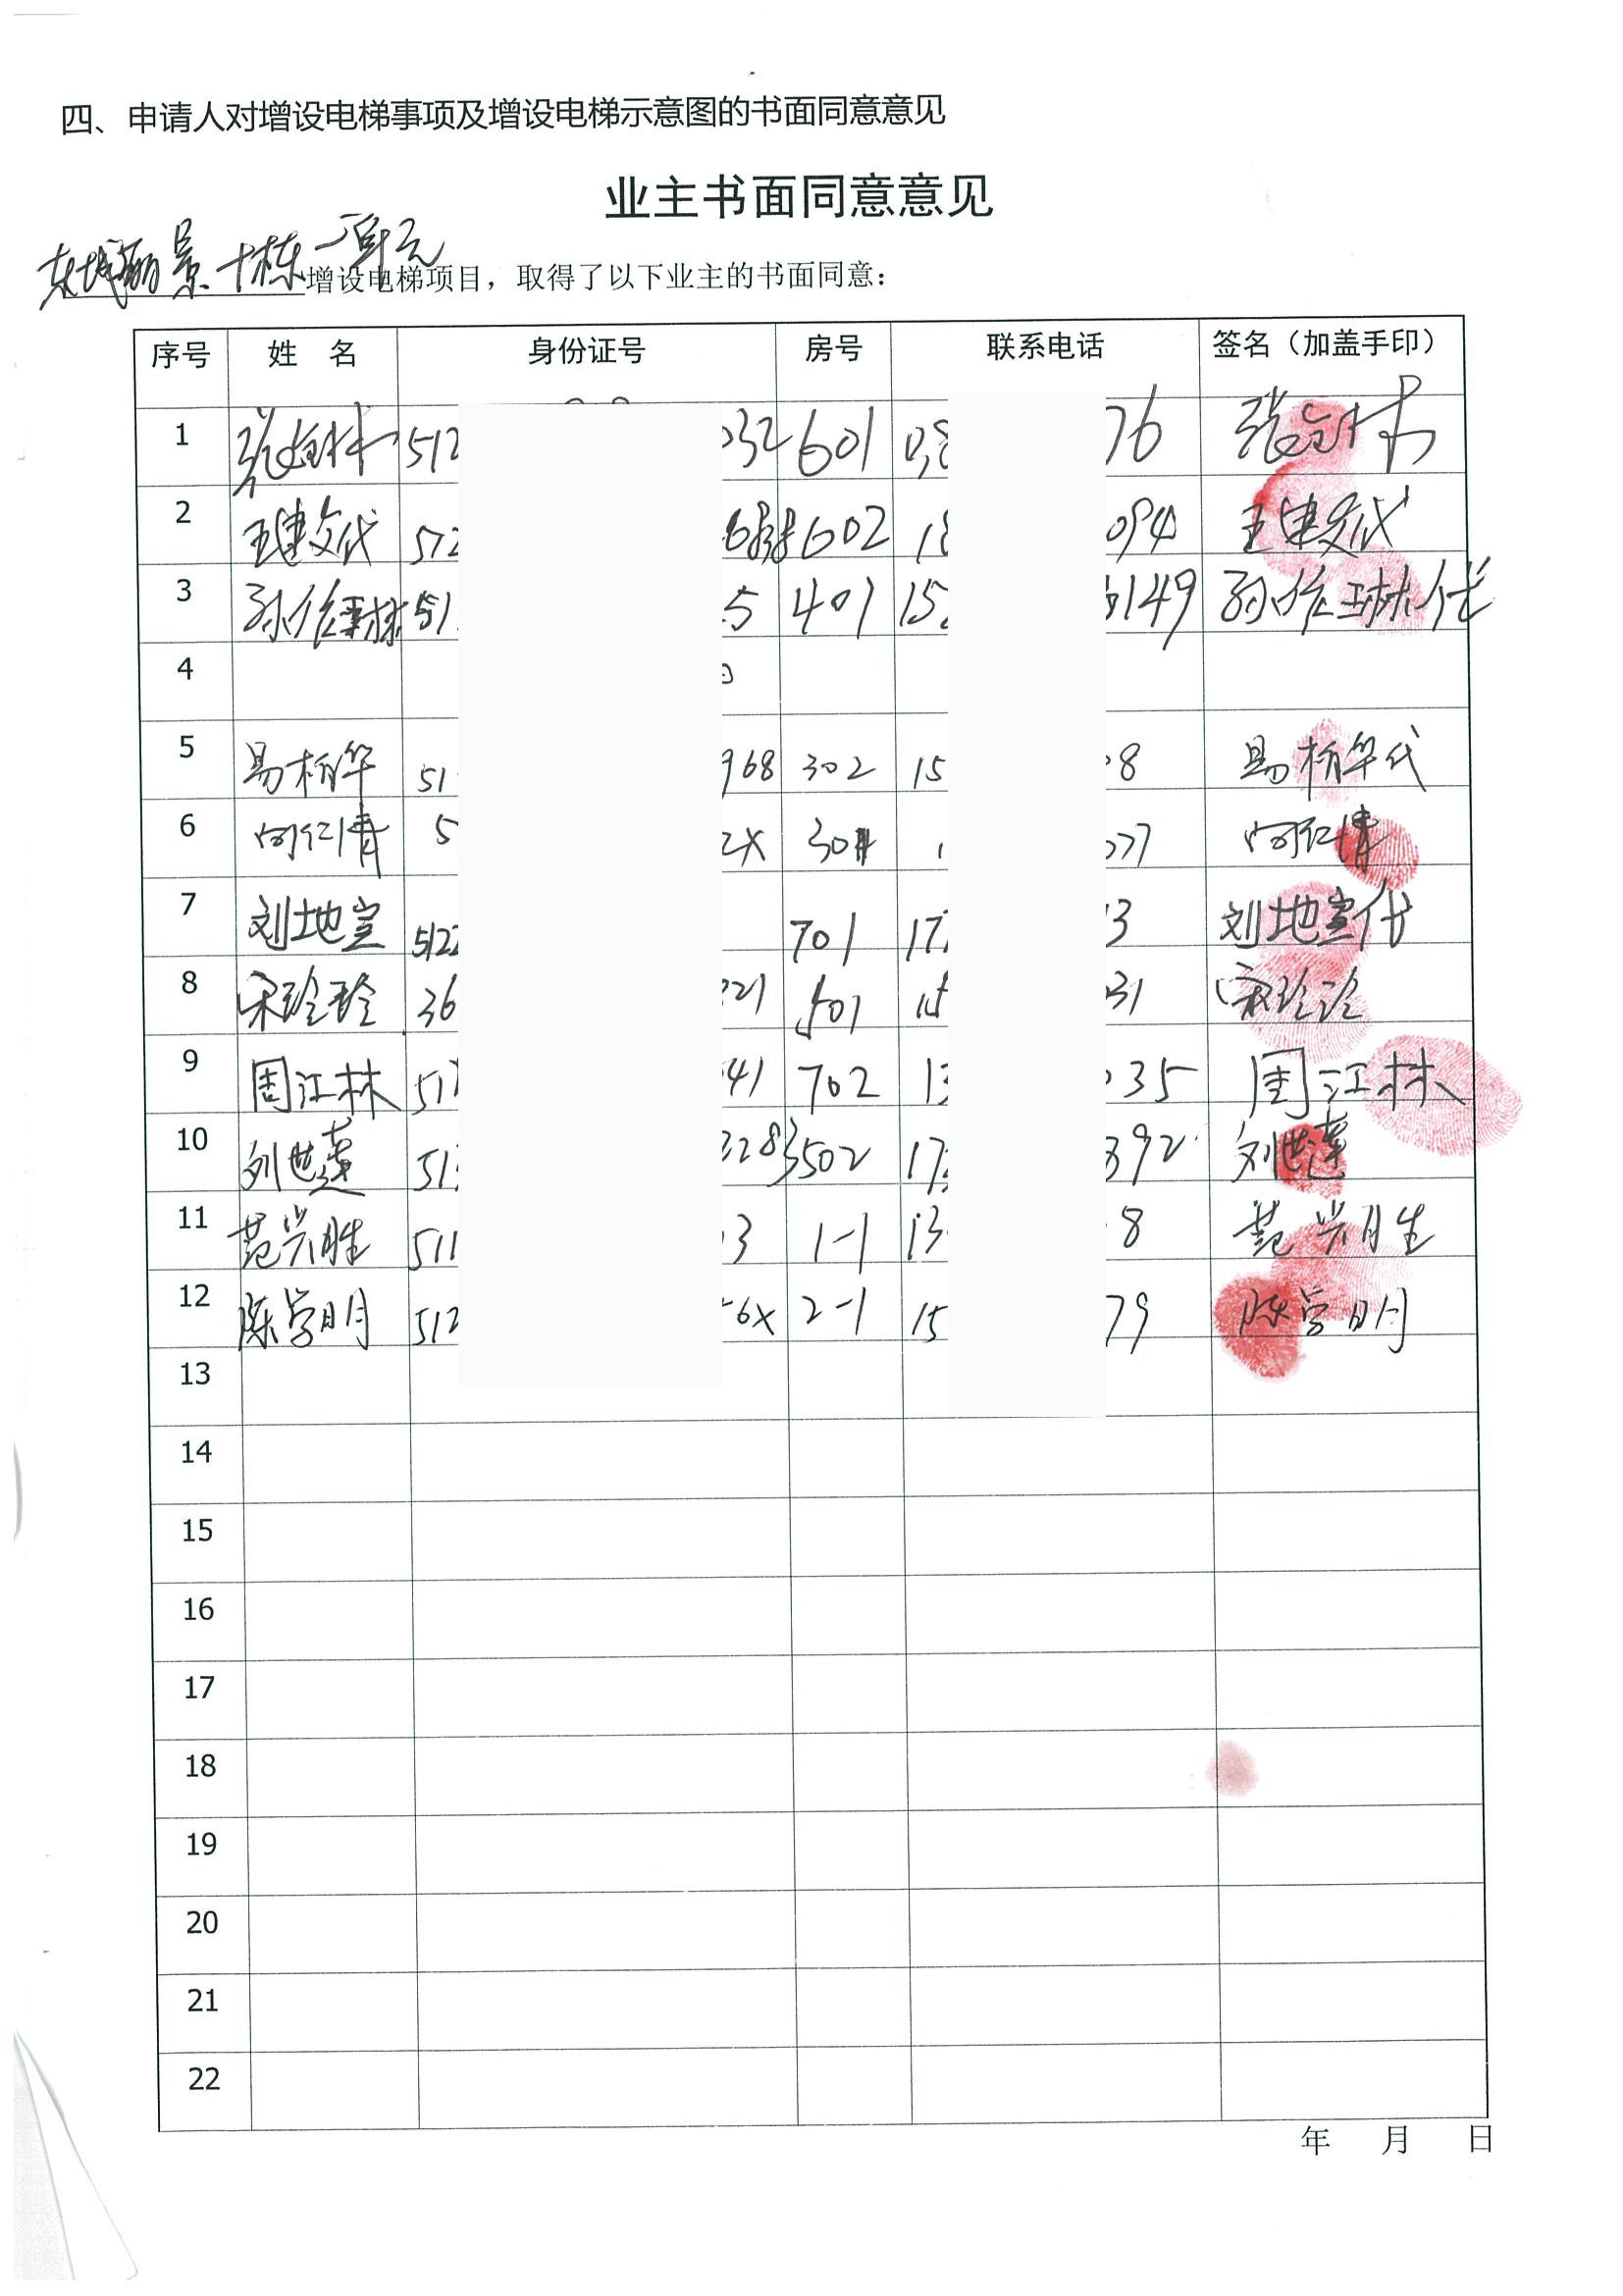 四、申请人对增设电梯事项及增设电梯示意图的书面同意意见
业主书面同意意见
东城丽景十栋一单元增设电梯项目，取得了以下业主的书面同意：
序号 姓 名 身份证号 房号 联系电话 签名（加盖手印）
1 512 032 601 76
2 512 602 18 094 代
3 51 5 401 15 149 代
4
5 易柏华 51 968 302 15 8 易柏华代
6 向仁清 5 2X 301 1 77 向仁清
7 刘地宣 5122 701 17 3 刘地宣代
8 宋玲玲 36 021 501 15 031 宋玲玲
9 周江林 51 41 702 13 035 周江林
10 刘世莲 51 3283 502 17 392 刘世莲
11 范兴胜 511 3 1-1 13 8 范兴胜
12 陈学明 512 6X 2-1 15 79 陈学明
13
14
15
16
17
18
19
20
21
22
年 月 日